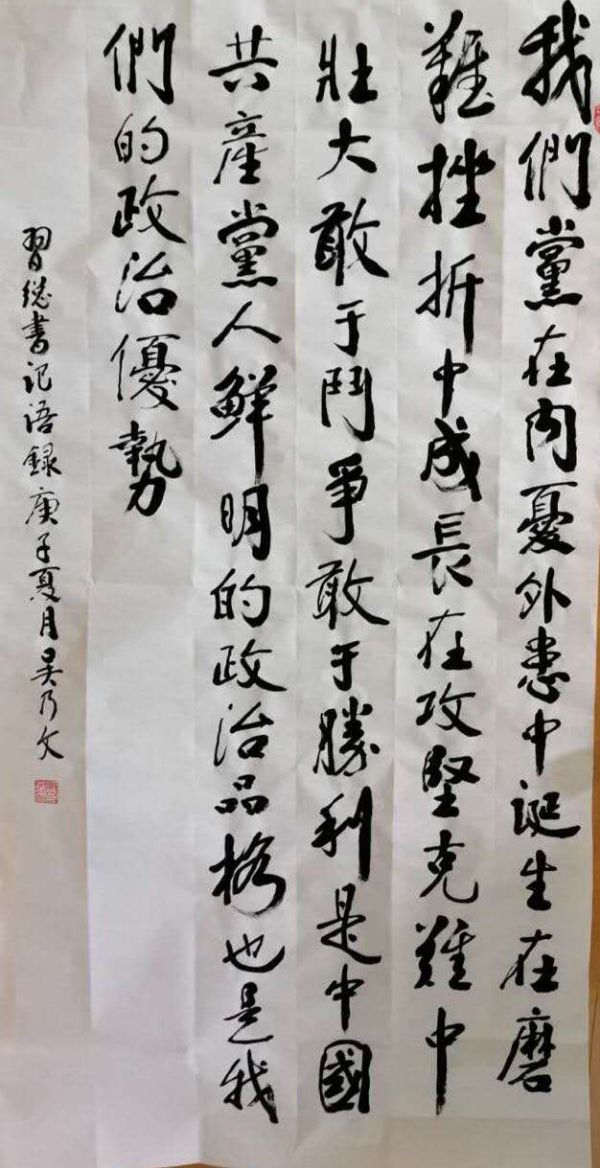 我們黨在内憂外患中誕生在磨
難挫折中成長在攻堅克難中
壯大敢于鬥爭敢于勝利是中國
共產黨人鮮明的政治品格也是我
們的政治優勢
習總書记语録庚子夏月吴乃文